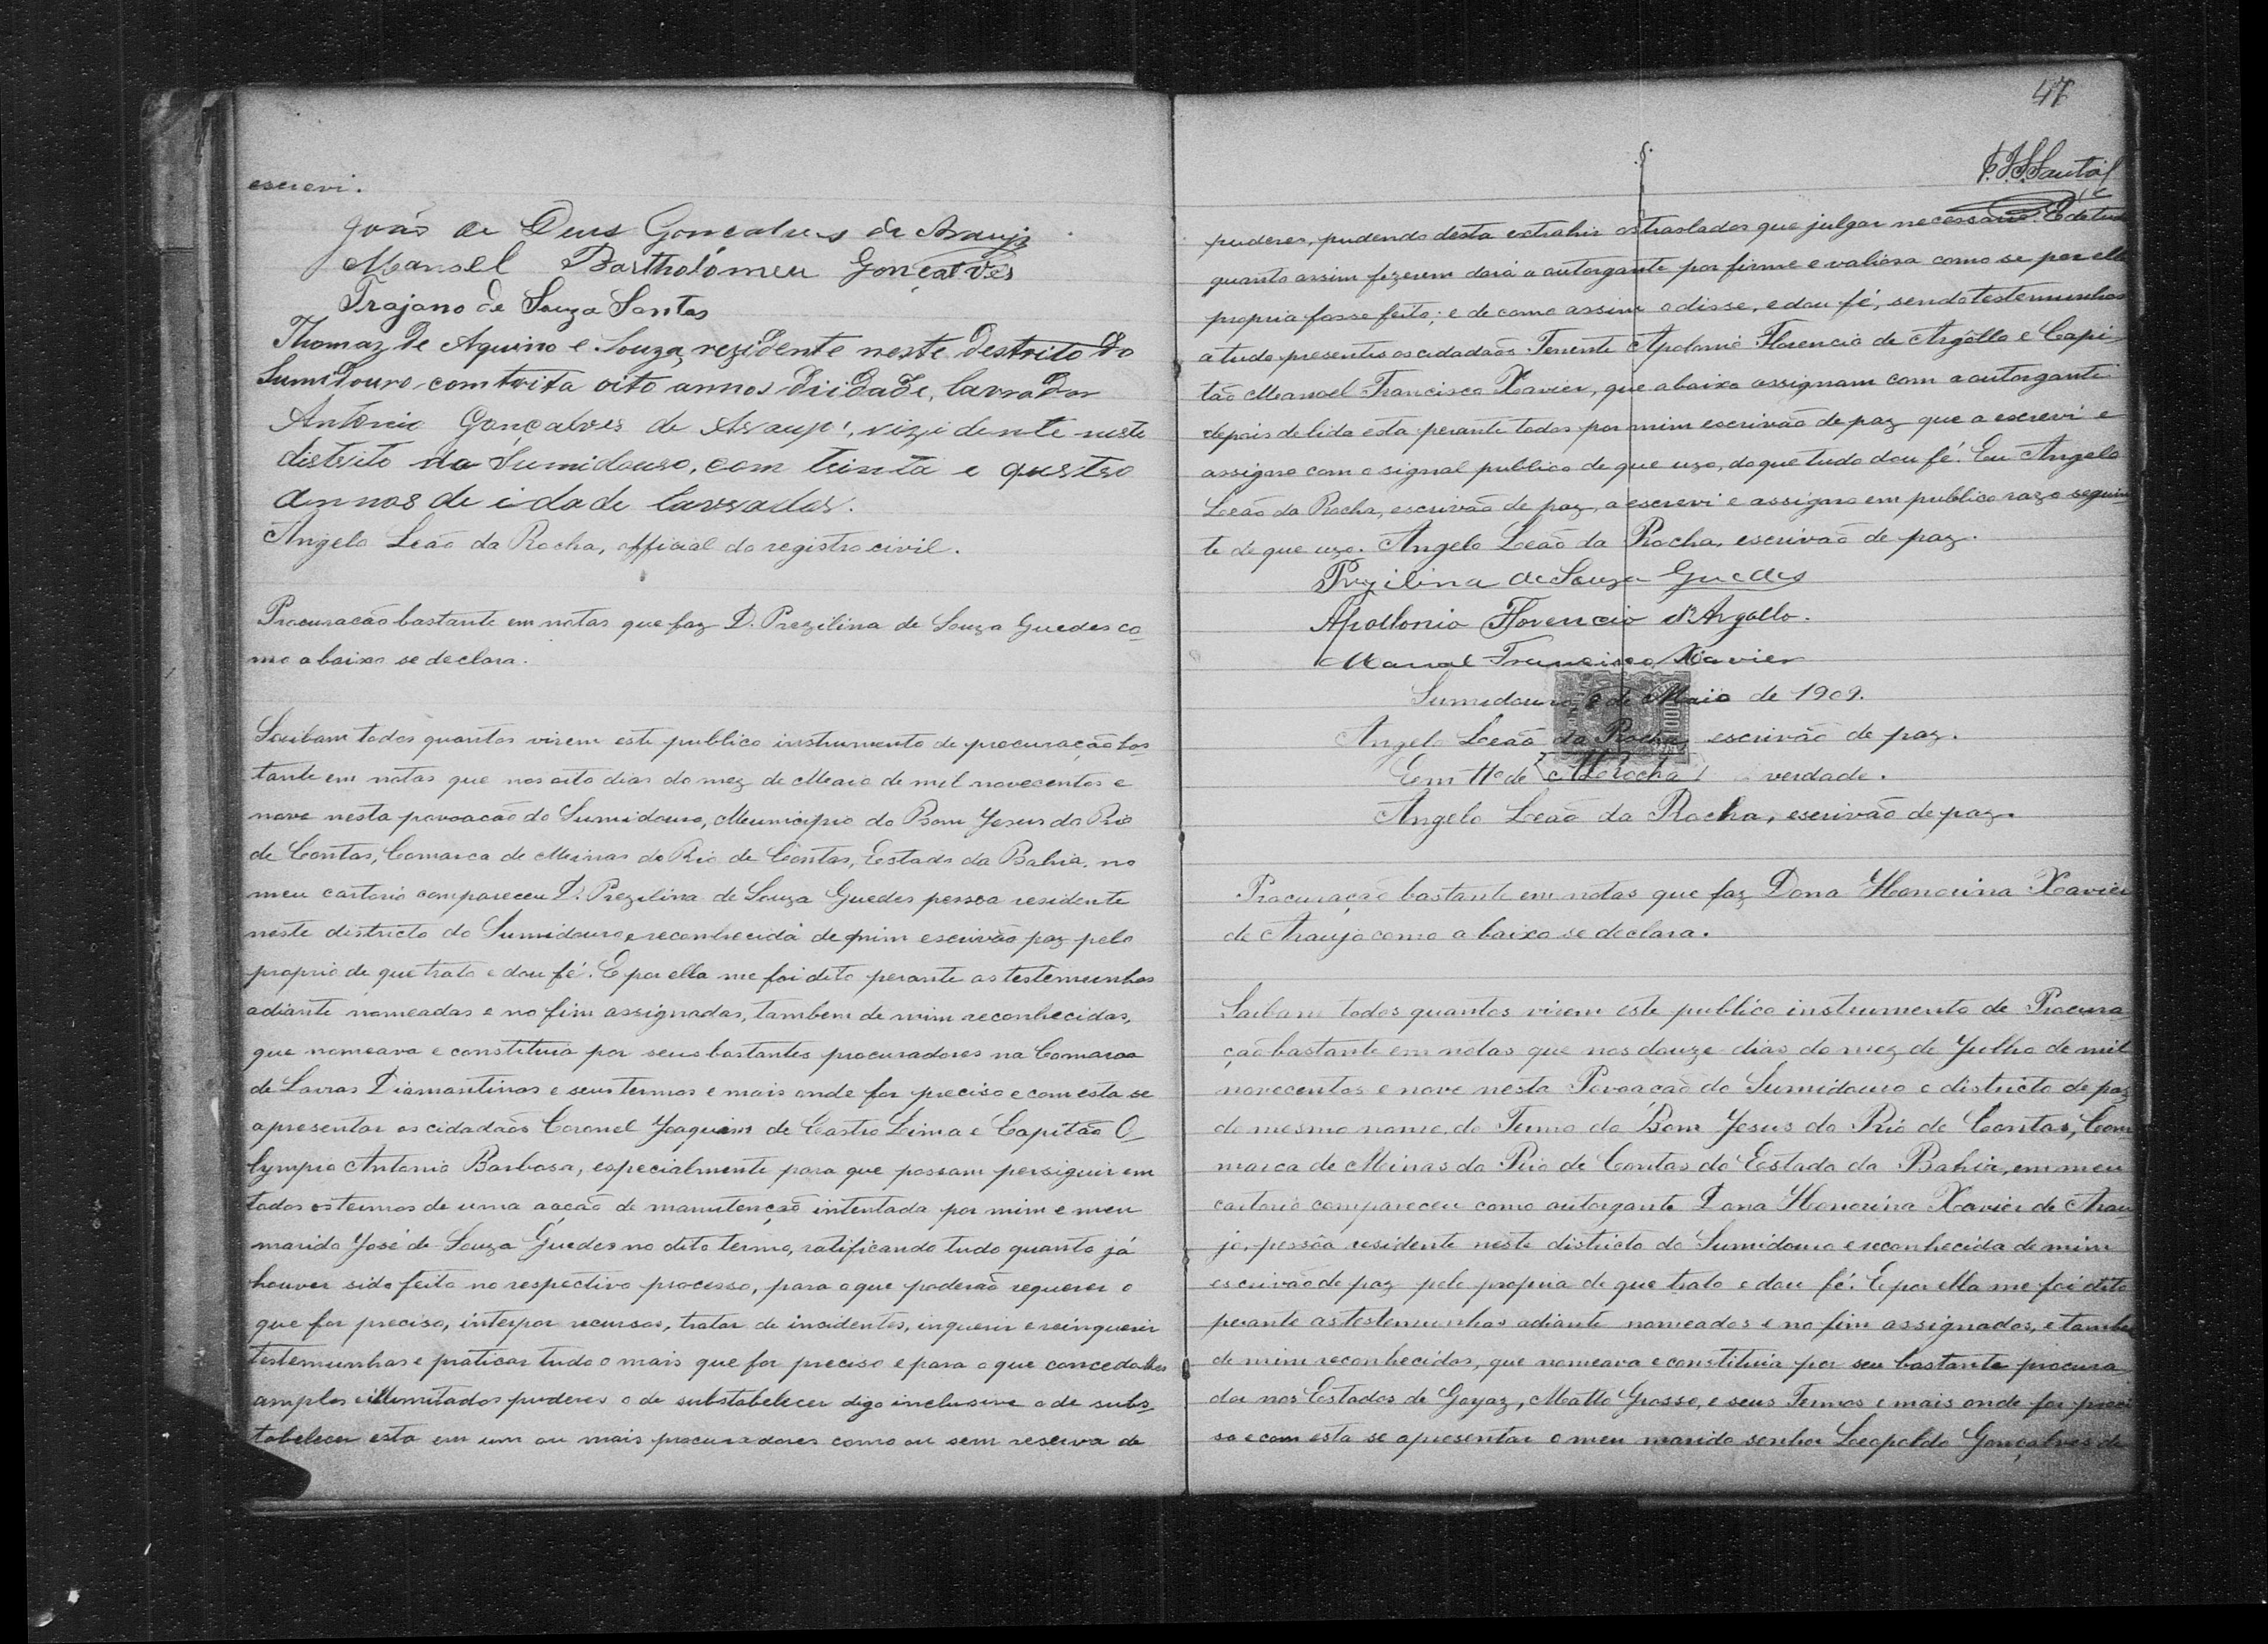 escrevi.
João de Deus Gonçalves de Araujo
Manoel Bartholomeu Gonçalves
Trajano de Souza Santos
Thomaz de Aquino e Souza, rezidente neste destrito do
Sumidouro com trita oito annos diidade, lavrador
Antonio Gonçalves de Araujo, rizidente neste
distrito do Sumidouro, com trinta e quatro
annos de idade lavrador.
Angelo Leão da Rocha, official do registro civil.
Procuração bastante em notas que faz D. Prezilina de Souza Guedes co-
mo abaixo se declara.
Saibam todos quantos virem este publico instrumento de procuração bas
tante em notas que nos oito dias do mez de Maio de mil novecentos e
nove nesta povoação do Sumidouro, Municipio do Bom Jesus do Rio
de Contas, Comarca de Minas do Rio de Contas, Estado da Bahia, no
meu cartorio compareceu D. Prezilina de Souza Guedes pessoa residente
neste districto do Sumidouro, e reconhecida de mim escrivão paz pelo
proprio de que trato e dou fé. E por ella me foi dito perante as testemunhas
adiante nomeadas e no fim assignadas, tambem de mim reconhecidas,
que nomeava e constituia por seus bastantes procuradores na Comarca
de Lavras Diamantinas e seus termos e mais onde for preciso e com esta se
apresentar os cidadãos Coronel Joaquim de Castro Lima e Capitão O-
lympio Antonio Barbosa, especialmente para que possam persiguir em
todos os termos de uma aação de manutenção intentada por mim e meu
marido José de Souza Guedes no dito termo, ratificando tudo quanto já
houver sido feito no respectivo processo, para o que poderão requerer o
que for preciso, interpor recursos, tratar de insidentes, inquerir e reinquerir
testemunhas e praticar tudo o mais que for preciso e para o que concedo-lhes
amplos e illimitados puderes o de substabelecer digo inclusive o de subs-
tabelecer esta em um ou mais procuradores como ou sem reserva de
47
puderes, pudendo desta extrahir os traslados que julgar necessario. E de tudo
quanto assim fezerem dará a outorgante por firme e valiosa como se por ella
propria fosse feito; e de como assim o disse, e dou fé, sendo testemunhas
a tudo presentes os cidadãos Tenente Apolonio Florencio de Argôllo e Capi-
tão Manoel Francisco Xavier, que abaixo assignam com a outorgante
depois de lida esta perante todos por mim escrivão de paz que a escrevi e
assigno com o signal publico de que uzo, do que tudo dou fé. Eu Angelo
Leão da Rocha, escrivão de paz, a escrevi e assigno em publico razo seguin
te de que uzo. Angelo Leão da Rocha, escrivão de paz.
Prezilina de Souza Guedes
Apollonio Florencio d'Argollo.
Manoel Francisco Xavier
Sumidouro, 8 de Maio de 1909.
Angelo Leão da Rocha, escrivão de paz.
Em tto de verdade.
Angelo Leão da Rocha, escrivão de paz.
Procuração bastante em notas que faz Dona Honorina Xavier
de Araujo como abaixo se declara.
Saibam todos quantos virem este publico instrumento de Procura
ção bastante em notas que nos douze dias do mez de Julho de mil
novecentos e nove nesta Povoação do Sumidouro e districto de paz
do mesmo nome, do Termo do Bom Jesus do Rio de Contas, Com
marca de Minas do Rio de Contas do Estado da Bahia, em meu
cartorio compareceu como outorgante Dona Honorina Xavier de Arau
jo, pessôa residente neste districto do Sumidouro e reconhecida de mim
escrivão de paz pelo propria de que trato e dou fé. E por ella me foi dito
perante as testemunhas adiante nomeados e no fim assignados, e tambem
de mim reconhecidos, que nomeava e constituia por seu bastante procura
dor nos Estados de Goyaz, Matto Grosso, e seus Termos e mais onde for preci
so e com esta se apresentar o meu marido senhor Leopoldo Gonçalves de